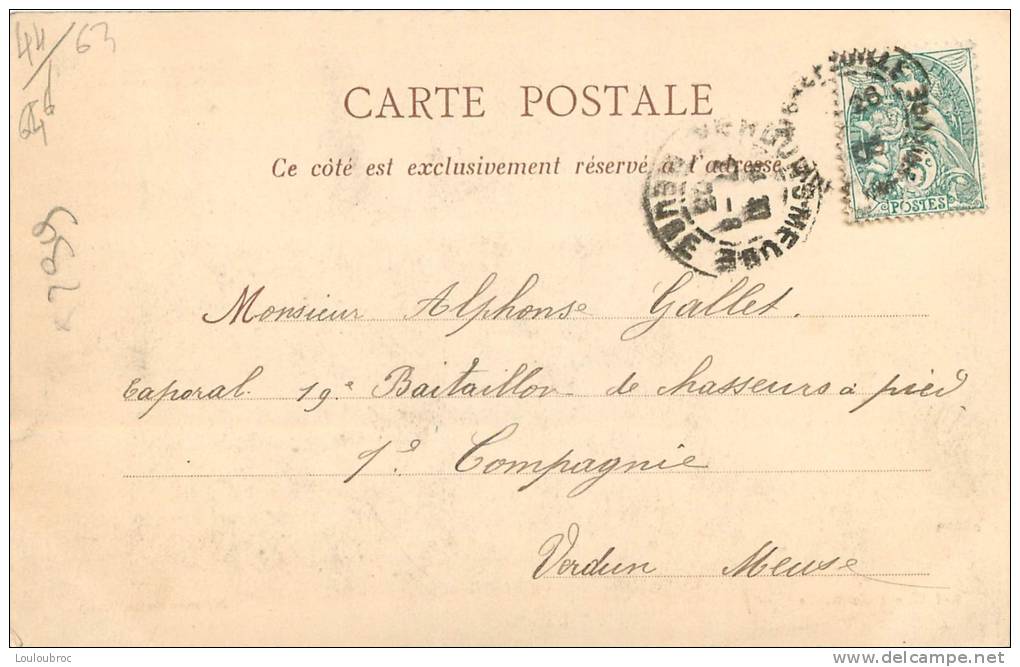 44/63
CARTE POSTALE
Ce côté est exclusivement réservé à l'adresse
POSTES
VERDUN-S-MEUSE
MEUSE
Monsieur Alphonse Gallet.
Caporal 19e Baitaillon de chasseurs à pied
1e Compagnie
Verdun Meuse
Louloubroc
www.delcampe.net